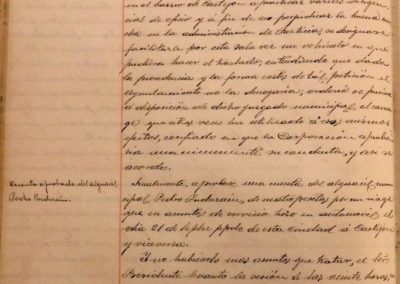 en el barrio de Castejon a practicar varias diligen-
cias de oficio y á fin de no perjudicar la buena mar-
cha en la administracion de Justicia, se designase
facilitara por esta sola vez un vehiculo en que
pudiera hacer el traslado; entendiendo que dada
la procedencia y la forma cortés de tal petición el
Ayuntamiento no la denegaria; ordenó se pusiera
á disposición de dicho juzgado municipal, el carrua-
ge que otras veces ha utilizado á los mismos
efectos, confiado en que la Corporación aproba-
ria unanimemente su conducta, y así se
acordó.
Cuenta aprobada del alguacil
Pedro Indurain.
Finalmente, aprobose una cuenta del alguacil muni-
cipal Pedro Indurain, de cuatro pesetas por un viage
que en asuntos de servicio hizo en automovil el
día 21 de Sepbre ppdo de esta ciudad á Castejon
y viceversa.
Y no habiendo mas asuntos que tratar, el Sor
Presidente levantó la sesión á las veinte horas,